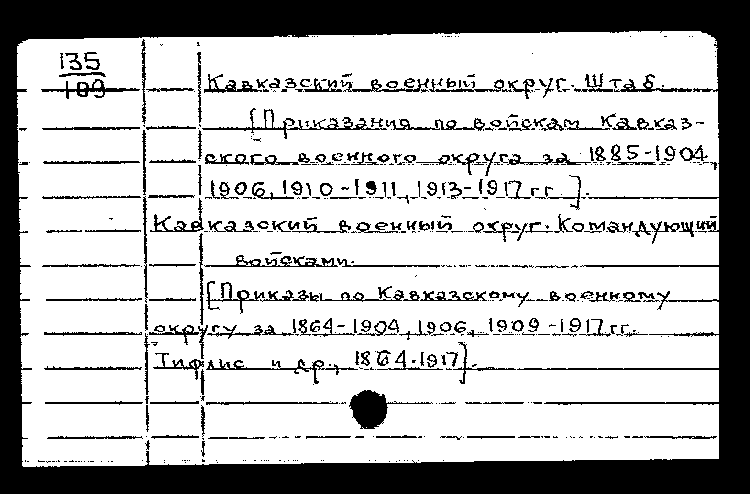 135
109
Кавказский военный округ. Штаб.
[Приказания по войскам Кавказ-
ского военного округа за 1885-1904,
1906, 1910-1911, 1913-1917 гг.].
Кавказский военный округ. Командующий
войсками.
[Приказы по Кавказскому военному
округу за 1864-1904, 1906, 1909-1917 гг.
Тифлис и др., 1864-1917].